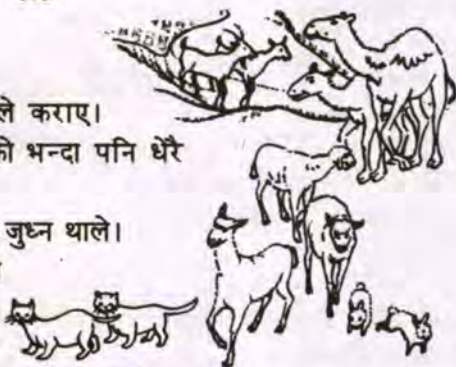 ले कराए।
भन्दा पनि धेरै
जुध्न थाले।